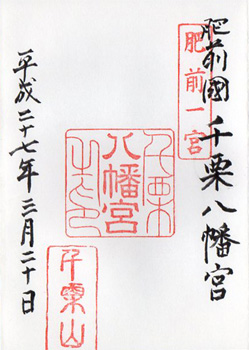 肥前國 千栗八幡宮
肥前一宮
千栗八幡宮
千栗山
平成二十七年三月二十日